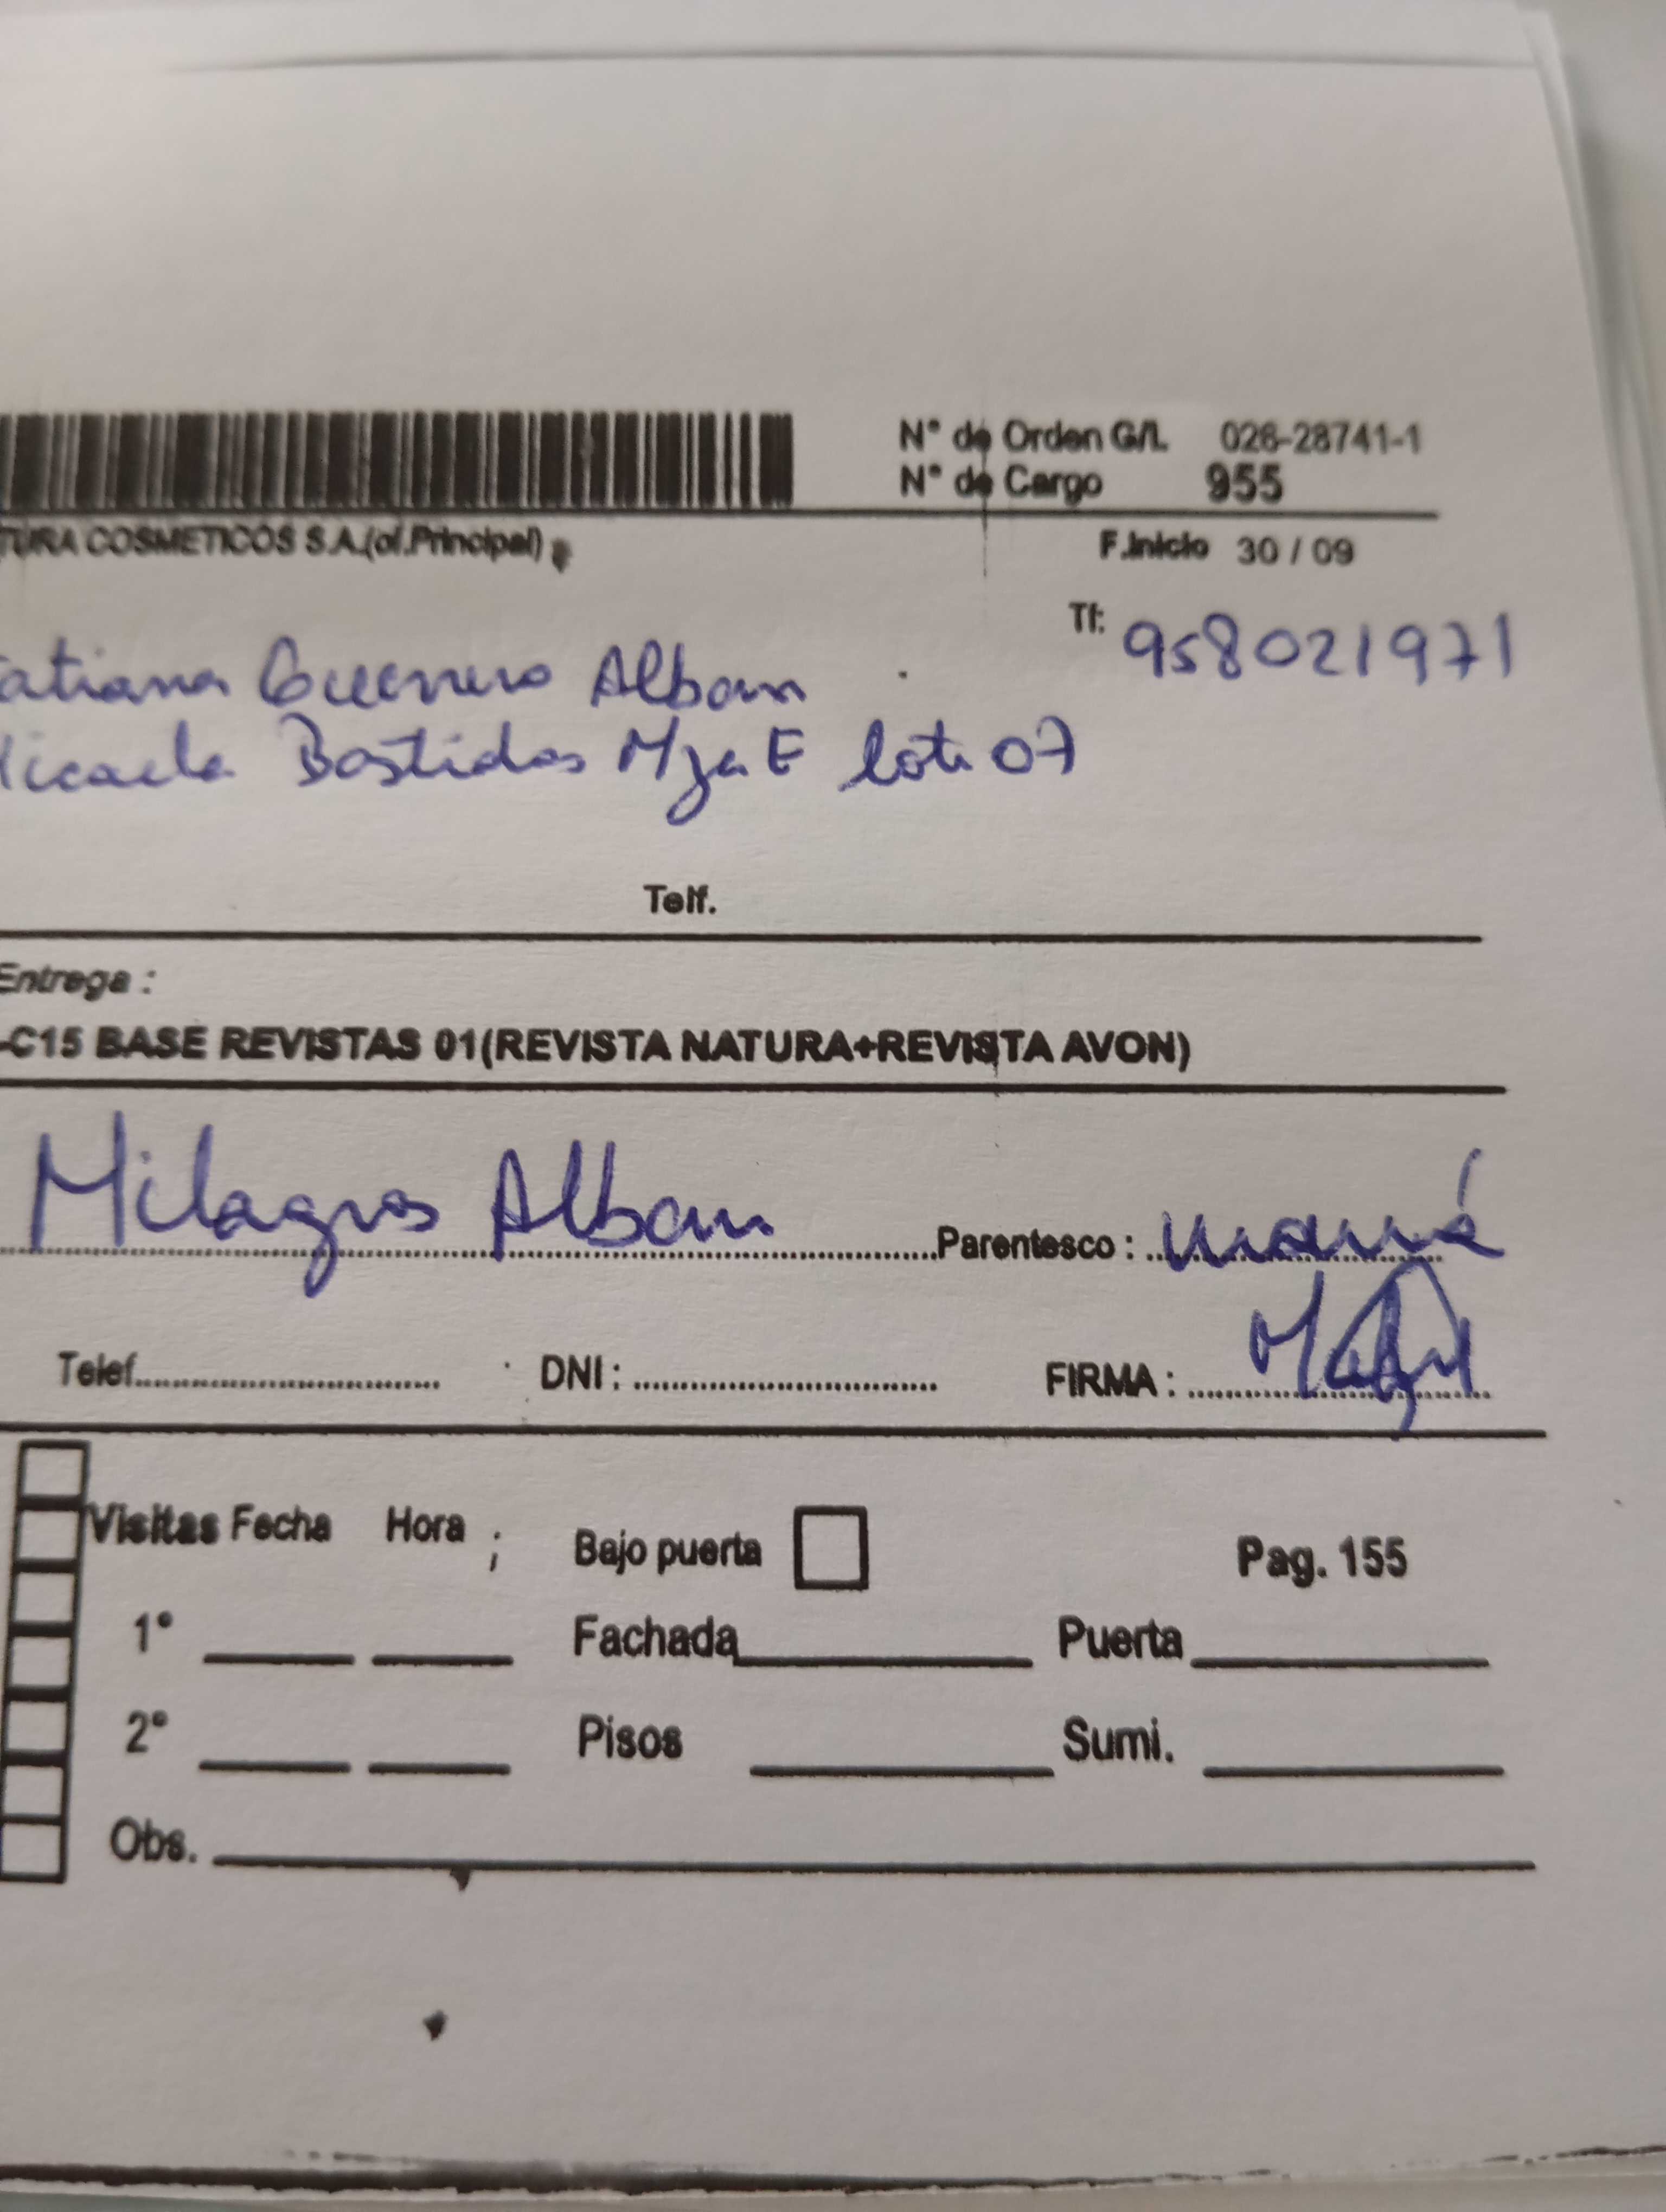 N° de Orden G/L 026-28741-1
N° de Cargo 955
TURA COSMETICOS S.A.(of.Principal)
F.Inicio 30 / 09
Tf: 958021971
atiana Guerrero Alban
icaela Bastidas Mza E lote 07
Telf.
Entrega :
-C15 BASE REVISTAS 01(REVISTA NATURA+REVISTA AVON)
Milagros Alban Parentesco : mamá
Telef. DNI : FIRMA :
Visitas Fecha Hora ; Bajo puerta Pag. 155
1° Fachada Puerta
2° Pisos Sumi.
Obs.